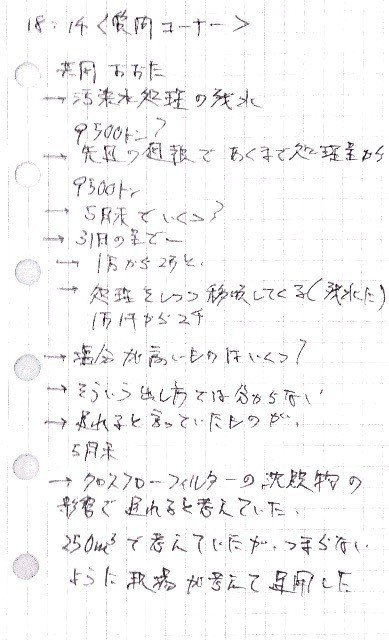 18:14<質問コーナー>
共同 おおた
→汚染水処理の残水
9500トン?
→先日の週報で あくまで処理量から
9500トン
→5月末でいくつ?
→31日の量で
→1万から2万と、
→処理をしつつ移送してくる(残水に)
1万1千から2千
→塩分が高いものはいくつ?
→そういう出し方では分からない
→遅れると言っていたものが、
5月末
→クロスフローフィルターの沈殿物の
影響で遅れると考えていた、
250m³で考えていたが、つまらない
ように現場が考えて運用した